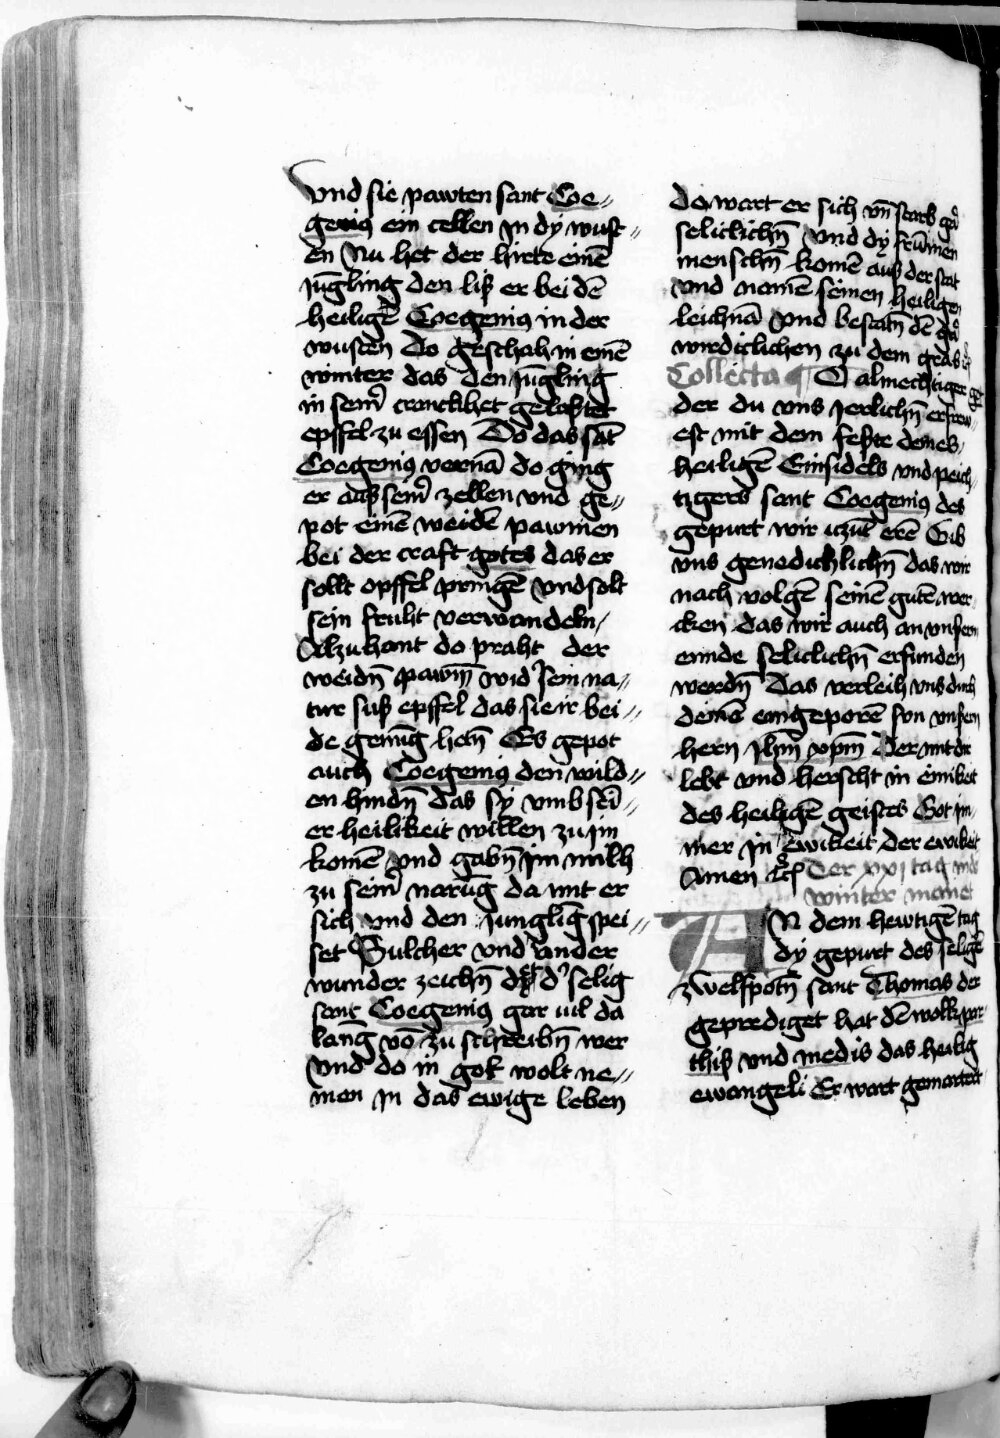 Vnd sie pawten sant Coe„
genius ein cellen in dÿ wust„
en Nu het der hirte einē
jūgling den liß er bei dē
heiligē Coegenius in der
wusten Do geschah in einē
winter das den jūgling
in sem̄ cranckhet gelustet
epffel zu essen Do das sāt
Coegenius vernā do ging
er auß sem̄ zellen vnd ge„
pot einē weidē pawmen
bei der craft gotes das er
sollt opffel pringē vnd solt
sein fruht verwandeln
Alzuhant do praht der
weidn̄ pawm̄ wid' sein na„
tur suß epffel das sie ir bei„
de genūg hetn̄ Es gepot
auch Coegenius den wild„
en hindn̄ das sÿ vmb sei„
er heilikeit willen zu im
komē vnd gabn̄ im milh
zu sem̄ narūg da mit er
sich vnd den jungliḡ spei„
set Sulcher vnd ander
wunder zeichn̄ det d' selig
sant Coegenius gar uil da
lanḡ vō zu schreibn̄ wer
Vnd do in got wolt ne„
men in das ewige leben
do wart er sich vn̄ starb gā
seliclichn̄ Vnd dÿ frūmen
menschn̄ komē auß der stat
vnd namē seinen heiligen
leichnā Vnd bestatn̄ dē gā
wirdiclichen zu dem grab
Collecta O almechtiger
der du vns jerlichn̄ erfrew„
est mit dem feste denes
heiligē Einsidels vnd peich„
tigers sant Coegenius des
gepurt wir iczūt erē Gib
vns genedichlichn̄ das wir
nach volgē seinē gutē wer
cken das wir auch an vnsern
ennde seliclichn̄ erfunden
werdn̄ Das verleih vns durch
deinē eingeporē sun vnsern
hern jhm̄ xpm̄ Der mit dir
lebt vnd herscht in einiket
des heiligē geistes Got im„
mer in ewikeit der ewiket
Amen Der xxi tag inde
winter monet
AN dem hewtigē tag
dÿ gepurt des seligē
zwelfpotn̄ sant Thomas der
geprediget hat dē wolk par
thiß vnd medis das heilig
ewangeli Er wart gemartert